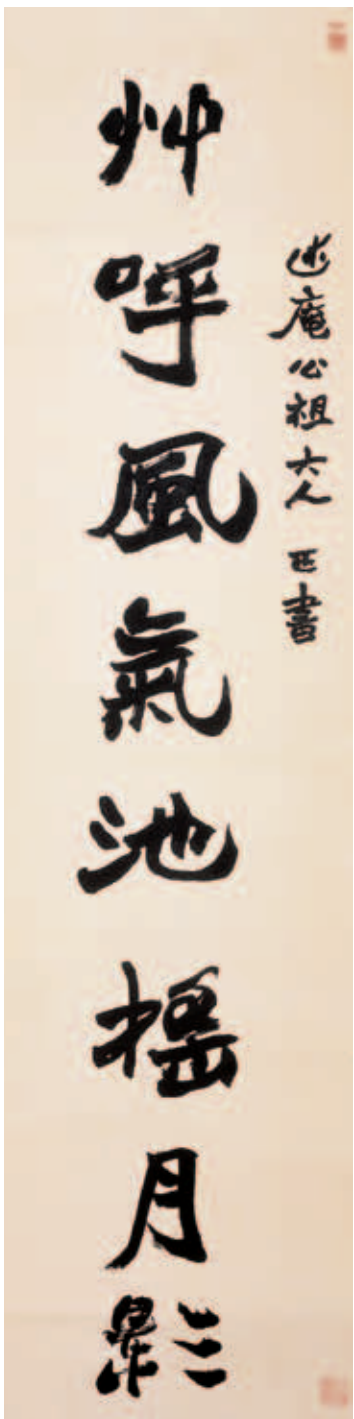 述庵公祖大人 正書
艸呼風氣池搖月影